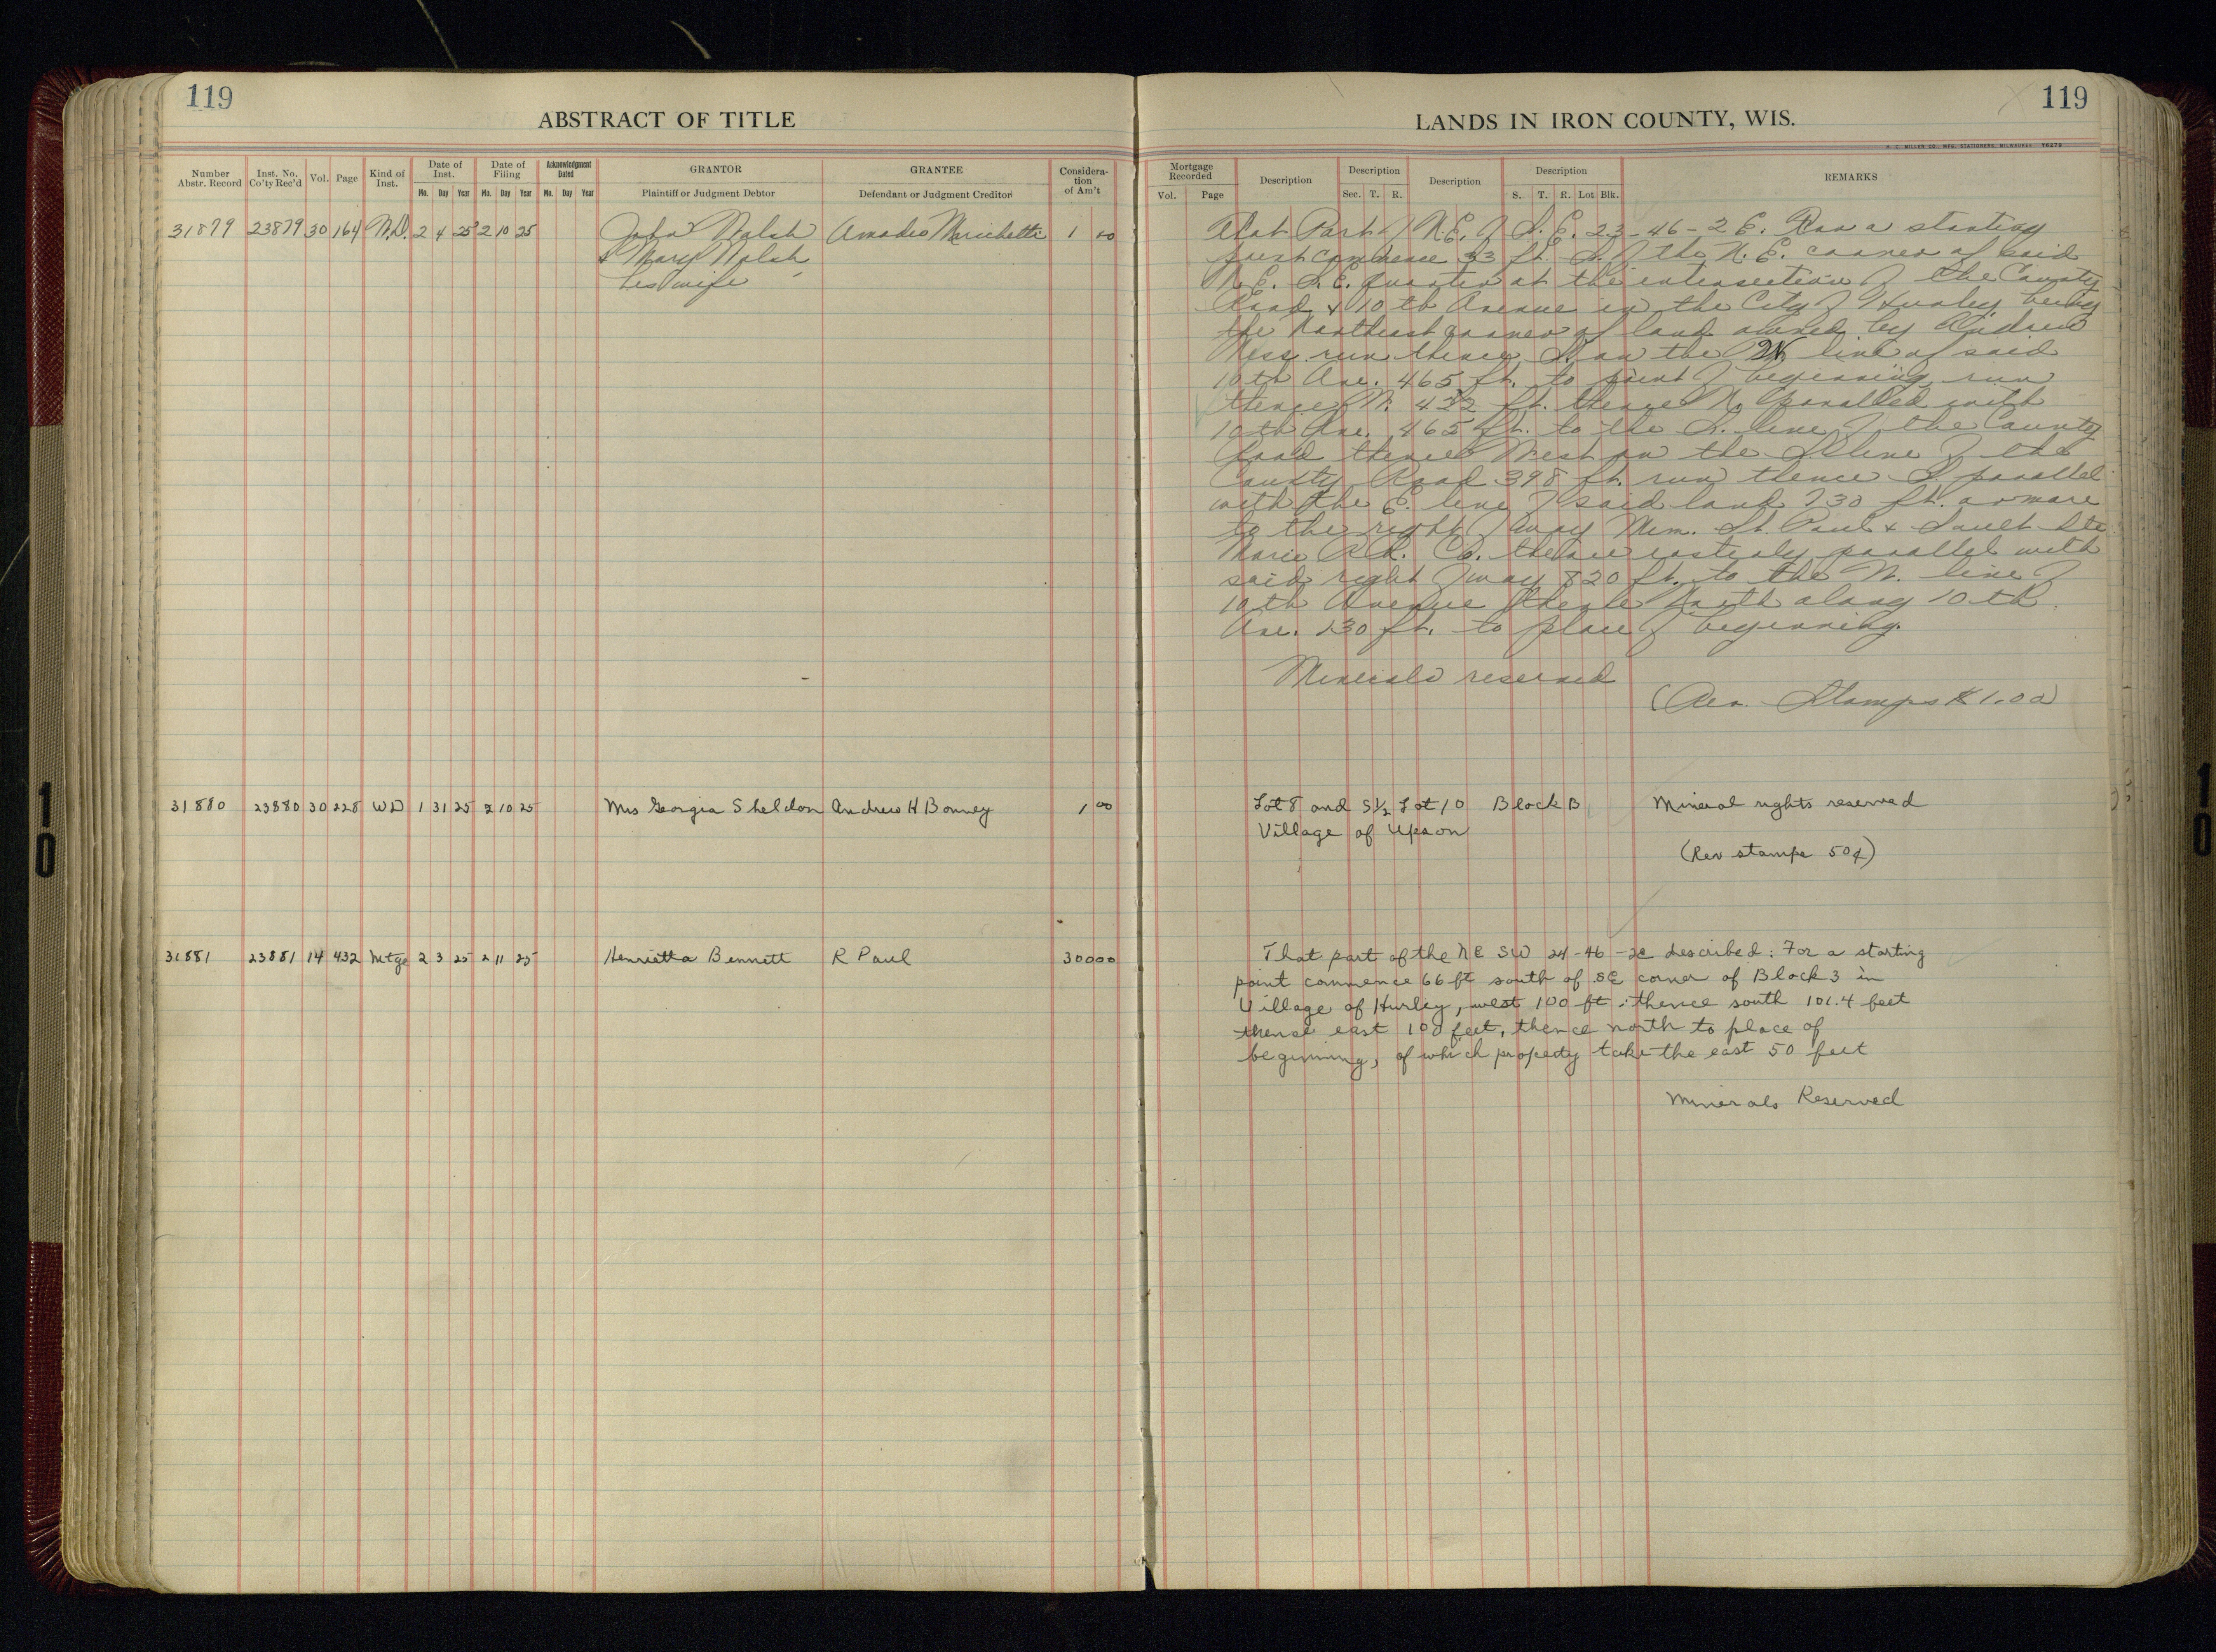 119
ABSTRACT OF TITLE
Number Abstr. Record
Inst. No. Co'ty Rec'd
Vol.
Page
Kind of Inst.
Date of Inst.
Mo. Day Year
Date of Filing
Mo. Day Year
Acknowledgment Dated
Mo. Day Year
GRANTOR
Plaintiff or Judgment Debtor
GRANTEE
Defendant or Judgment Creditor
Considera-
tion
of Am't
31879 23879 30 164 W.D. 2 4 25 2 10 25 John Walsh Amadeo 1 00
& Mary Walsh,
his wife
31880 23880 30 228 WD 1 31 25 2 10 25 Mrs Georgia Sheldon Andrew H Bonney 1 00
31881 23881 14 432 Mtge 2 3 25 2 11 25 Henrietta Bennett R Paul 300 00
LANDS IN IRON COUNTY, WIS.
119
H. C. MILLER CO., MFG. STATIONERS, MILWAUKEE
Mortgage Recorded
Vol. Page
Description
Description
Sec. T. R.
Description
Description
S. T. R. Lot Blk.
REMARKS
That Part of N.E. of S.E. 23-46-2 E. For a starting
point commence 33 ft. S. of the N.E. corner of said
N.E. S.E. quarter at the intersection of the County
Road & 10th Avenue in the City of Hurley, being
the Northeast corner of land owned by Andrew
run thence S. on the W line of said
10th Ave. 465 ft. to point of beginning, run
thence W. 432 ft. thence N. parallel with
10th Ave. 465 ft. to the S. line of the County
Road thence West on the S. line of the
County Road 398 ft. run thence S. parallel
with the E. line of said land 730 ft. or more
to the right of way Minn. St. Paul & Sault Ste
Marie R.R. Co. thence easterly parallel with
said right of way 820 ft. to the W. line of
10th Avenue thence North along 10th
Ave. 230 ft. to place of beginning.
Minerals reserved
(Rev. Stamps $1.00)
Lot 8 and S½ Lot 10 Block B Mineral rights reserved
Village of Upson
(Rev stamps 50¢)
That part of the NE SW 24-46-2E described: For a starting
point commence 66 ft south of SE corner of Block 3 in
Village of Hurley, west 100 ft; thence south 101.4 feet
thence east 100 feet, thence north to place of
beginning, of which property take the east 50 feet
Minerals Reserved
10
10